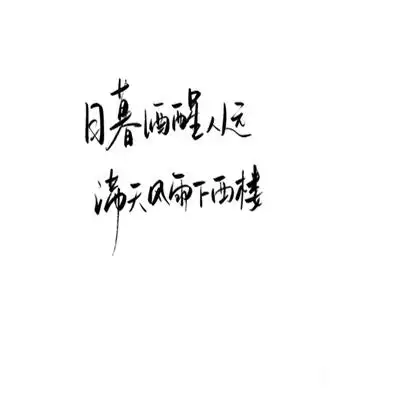 日暮酒醒人远
满天风雨下西楼